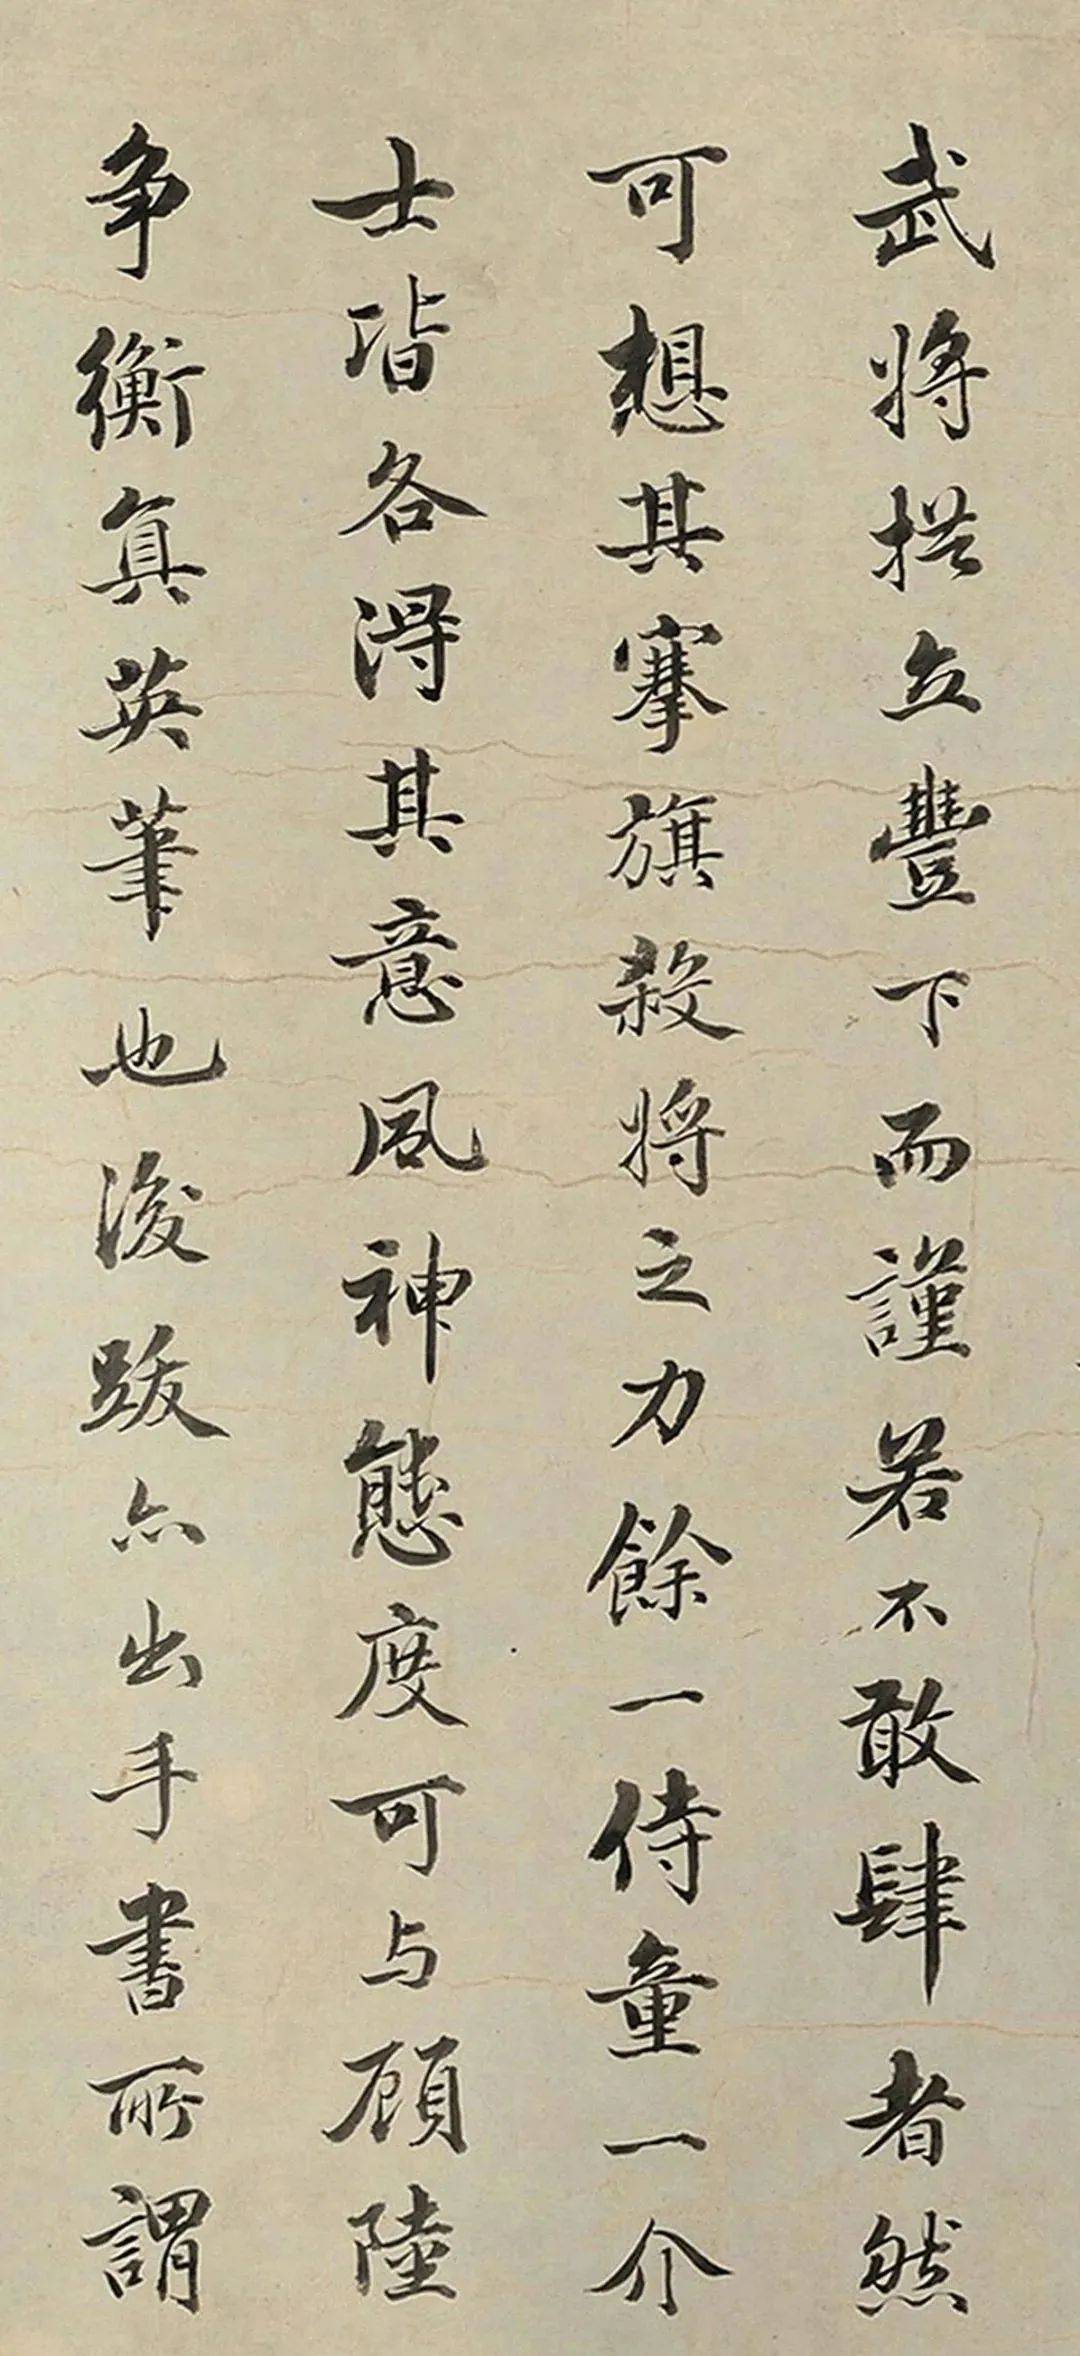 武將拱立豐下而謹若不敢肆者然
可想其搴旗殺將之力餘一侍童一介
士皆各得其意風神態度可与顧陸
争衡真英筆也後跋亦出手書所謂